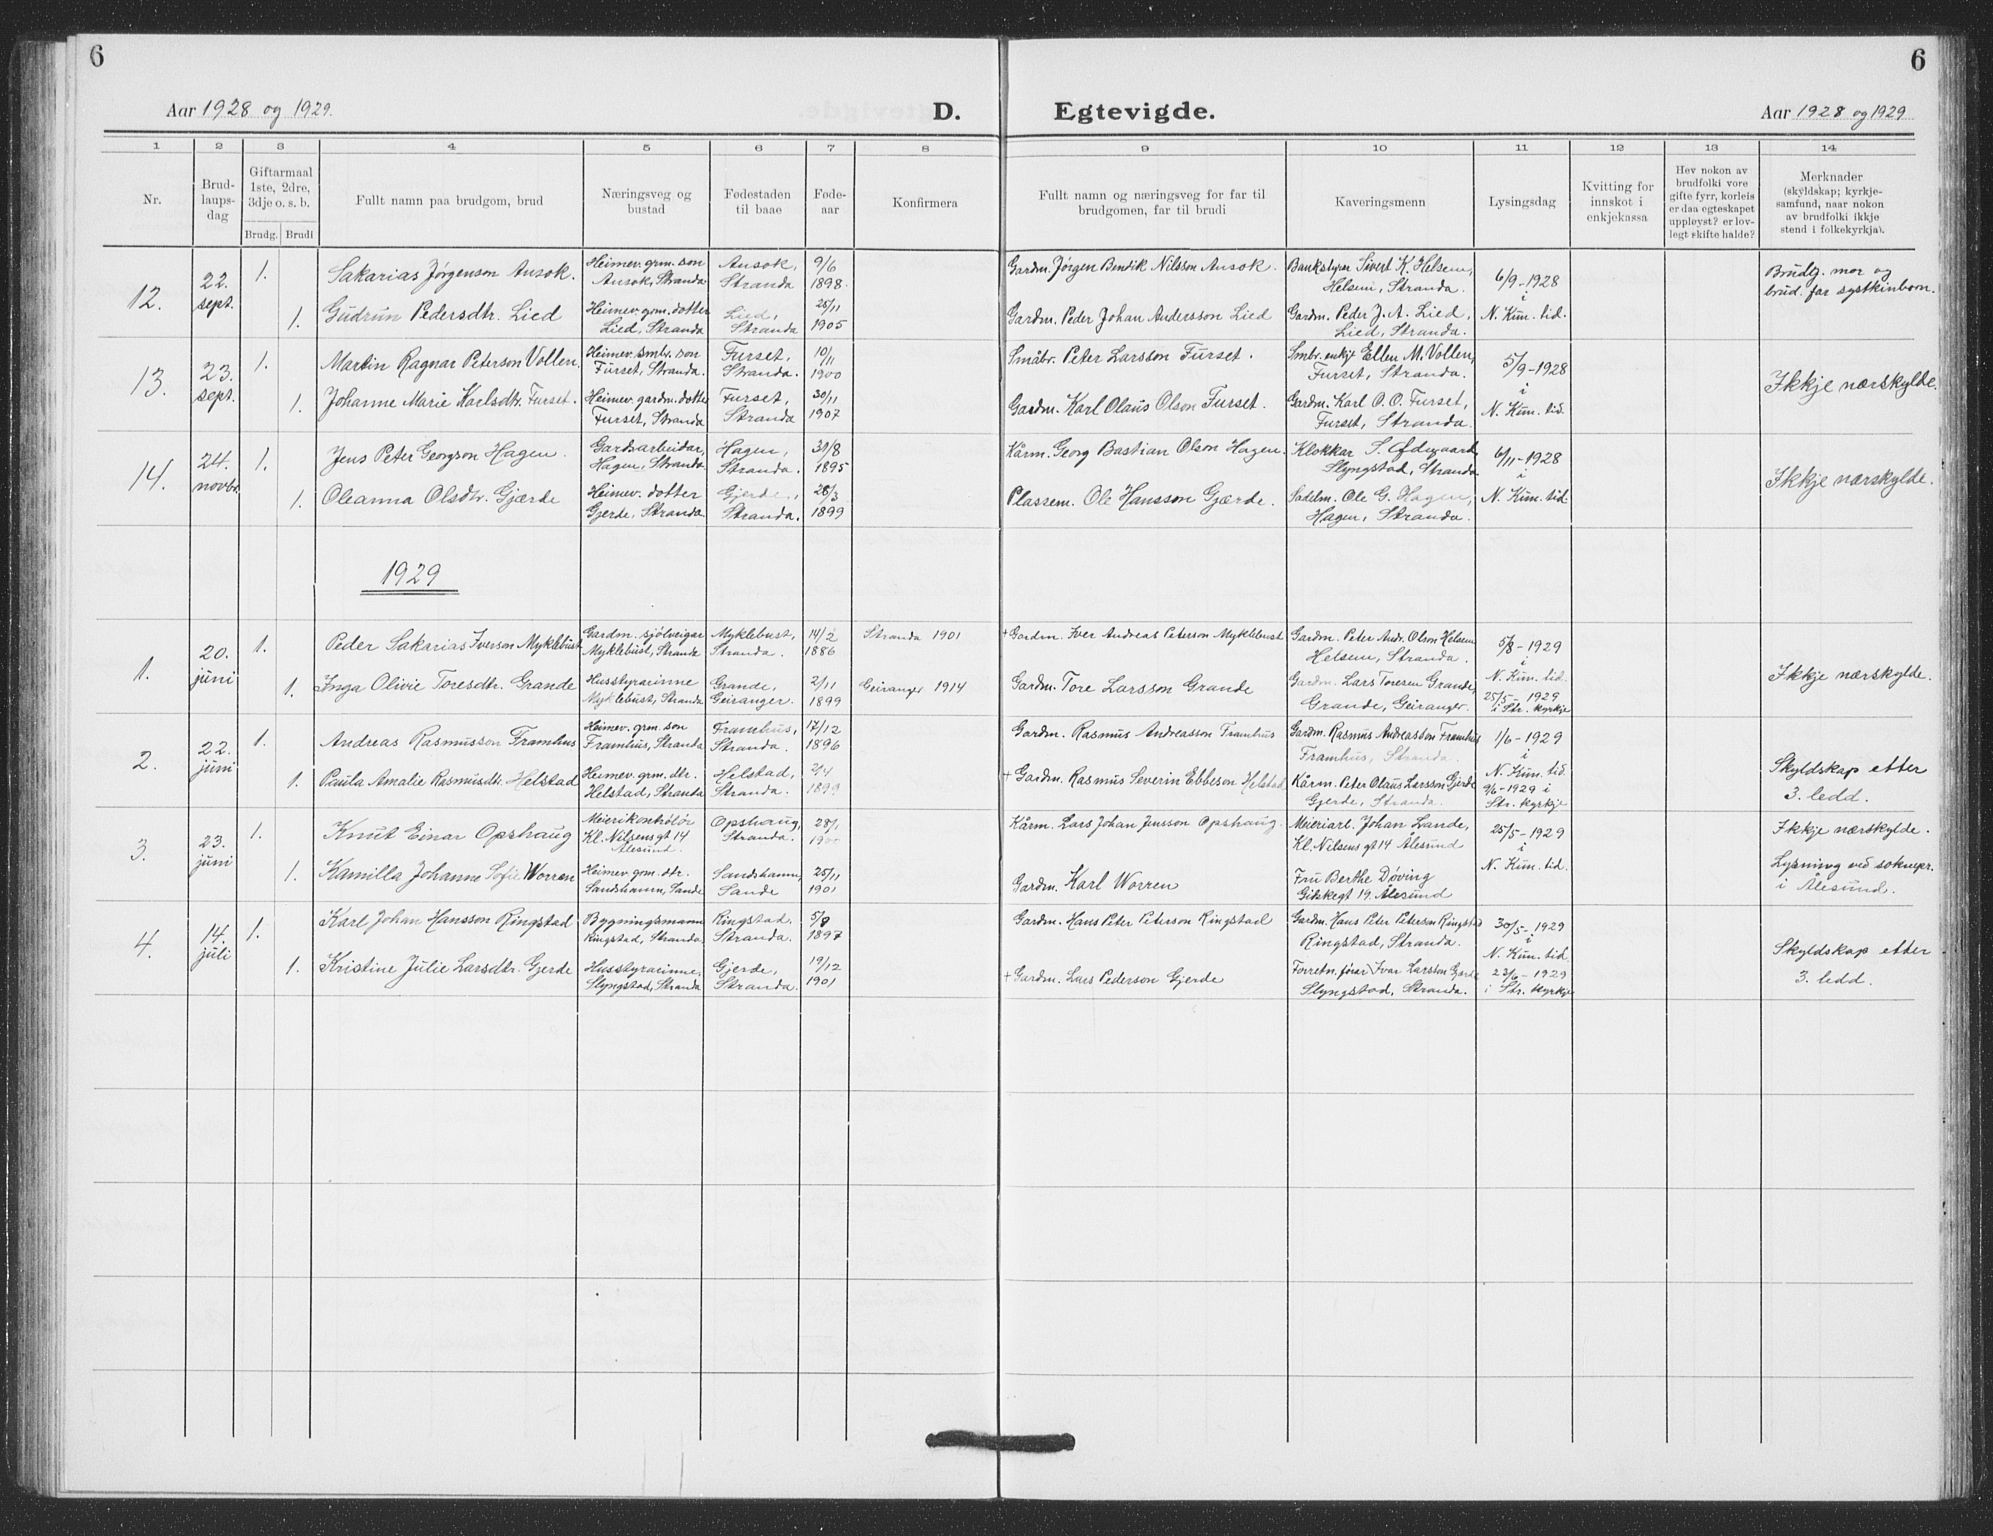 6
6
Aar 1928 og 1929.
D.
Egtevigde.
Aar 1928 og 1929
1 2 3 4 5 6 7 8 9 10 11 12 13 14
Nr.
Brud-
laups-
dag
Giftarmaal
1ste, 2dre,
3dje o. s. b.
Brudg. Brudi
Fullt namn paa brudgom, brud
Næringsveg og
bustad
Fødestaden
til baae
Føde-
aar
Konfirmera
Fullt namn og næringsveg for far til
brudgomen, far til brudi
Kaveringsmenn
Lysingsdag
Kvitting for
innskot i
enkjekassa
Hev nokon av
brudfolki vore
gifte fyrr, korleis
er daa egteskapet
upployst? er lov-
legt skifte halde?
Merknader
(skyldskap; kyrkje-
samfund, naar nokon
av brudfolki ikkje
stend i folkekyrkja).
12.
22.
sept.
1.
Sakarias Jørgenson Ansok.
Heimev. grm. son
Ansok, Stranda
Ansok,
Stranda
9/6
1898.
Gardm. Jørgen Bendik Nilsson Ansok.
Bankstyrer Sivert K. Helsem,
Helsem, Stranda.
6/9-1928
i
N. Kun. tid.
Brudg. mor og
brud. far systkinborn.
1.
Gudrun Pedersdtr. Lied
Heimev. grm. dotter
Lied, Stranda
Lied,
Stranda
25/11
1905
Gardm. Peder Johan Andersson Lied
Gardm. Peder J. A. Lied,
Lied, Stranda.
13.
23.
sept.
1.
Martin Ragnar Peterson Vollen.
Heimev. smbr. son
Furset, Stranda.
Furset,
Stranda.
10/11
1900
Småbr. Peter Larsson Furset.
Smbr. enkje Ellen M. Vollen,
Furset, Stranda.
5/9-1928
i
N. Kun. tid.
Ikkje nærskylde.
1.
Johanne Marie Karlsdtr. Furset.
Heimev. gardm. dotter
Furset, Stranda
Furset,
Stranda
30/11
1907
Gardm. Karl Olaus Olson Furset.
Gardm. Karl O. O. Furset,
Furset, Stranda.
14.
24.
novbr.
1.
Jens Peter Georgson Hagen.
Gardsarbeidar,
Hagen, Stranda.
Hagen,
Stranda.
31/8
1895
Kårm. Georg Bastian Olson Hagen.
Klokkar S. Ødegaard,
Slyngstad, Stranda
6/11-1928
i
N. Kun. tid.
Ikkje nærskylde.
1.
Oleanna Olsdtr. Gjærde
Heimev. dotter
Gjerde, Stranda.
Gjerde,
Stranda.
28/3
1899
Plassem. Ole Hansson Gjærde.
Sadelm. Ole G. Hagen,
Hagen, Stranda.
1929
1.
20.
juni
1.
Peder Sakarias Iverson Myklebust
Gardm. sjølveigar
Myklebust, Stranda
Myklebust,
Stranda.
14/2
1886
Stranda 1901
+ Gardm. Iver Andreas Peterson Myklebust
Gardm. Peter Andr. Olson Helsem
Helsem, Stranda.
5/8-1929
i
N. Kun. tid.
25/5-1929
i Str. kyrkje
Ikkje nærskylde.
1.
Inga Olivie Toresdtr. Grande
Husstyrarinne
Myklebust, Stranda
Grande,
Geiranger.
2/11
1899
Geiranger 1914
Gardm. Tore Larsson Grande
Gardm. Lars Toresen Grande,
Grande, Geiranger.
2.
22.
juni
1.
Andreas Rasmusson Framhus
Heimev. grm. son
Framhus, Stranda
Framhus,
Stranda.
17/12
1896
Gardm. Rasmus Andreasson Framhus
Gardm. Rasmus Andreasson Framhus
Framhus, Stranda.
1/6-1929
i
N. Kun. tid.
9/6-1929 i
Str. kyrkje
Skyldskap etter
3. ledd.
1.
Paula Amalie Rasmusdtr. Helstad
Heimev. grm. dtr.
Helstad, Stranda
Helstad,
Stranda.
2/4
1899
+ Gardm. Rasmus Severin Ebbeson Helstad
Kårm. Peter Olaus Larsson Gjerde
Gjerde, Stranda.
3.
23.
juni
1.
Knut Einar Opshaug
Meierikontrolør
Kl. Nilsens gt 14
Ålesund.
Opshaug,
Stranda.
Kårm. Lars Johan Jensson Opshaug.
Meieriarl. Johan Lande,
Kl. Nilsens gt 14 Ålesund
25/5-1929
i
N. Kun. tid.
Ikkje nærskylde.
Lysning ved soknepr.
i Ålesund.
1.
Kamilla Johanne Sofie Worren
Heimev. grm. dtr.
Sandshamn, Sande
Sandshamn,
Sande
25/11
1901
Gardm. Karl Worren
Fru Berthe Døving
Gidskegt 19. Ålesund
4.
14.
juli
1.
Karl Johan Hansson Ringstad
Bygningsmann
Ringstad, Stranda.
Ringstad,
Stranda.
5/8
1897
Gardm. Hans Peter Peterson Ringstad
Gardm. Hans Peter Peterson Ringstad
Ringstad, Stranda.
30/5-1929
i
N. Kun. tid
23/6-1929
i Str. kyrkje
Skyldskap etter
3. ledd.
1.
Kristine Julie Larsdtr. Gjerde
Husstyrarinne,
Slyngstad, Stranda
Gjerde,
Stranda.
19/12
1901
+ Gardm. Lars Pederson Gjerde
Forretn. fører Ivar Larsson Gjerde
Slyngstad, Stranda.